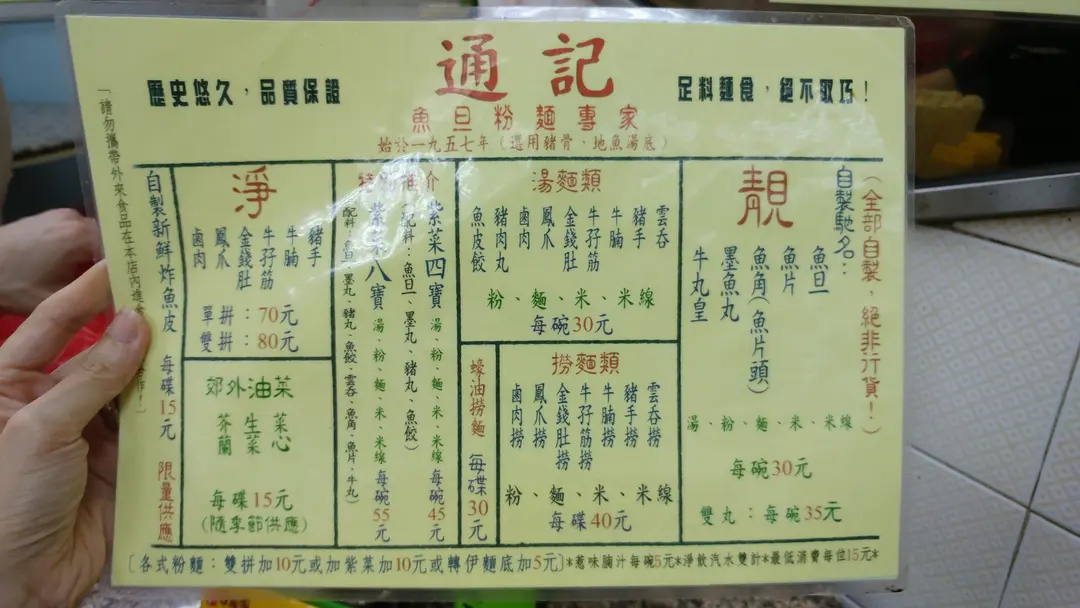 通記
歷史悠久，品質保證
足料麵食，絕不取巧！
魚旦粉麵專家
始於一九五七年（選用豬骨、地魚湯底）
靚
（全部自製，絕非行貨！）
自製馳名：
魚旦
魚片
魚角（魚片頭）
墨魚丸
牛丸皇
湯、粉、麵、米、米線
每碗30元
雙丸：每碗35元
湯麵類
雲吞
豬手
牛腩
牛孖筋
金錢肚
鳳爪
鹵肉
豬肉丸
魚皮餃
粉、麵、米、米線
每碗30元
撈麵類
雲吞撈
豬手撈
牛腩撈
牛孖筋撈
金錢肚撈
鳳爪撈
鹵肉撈
粉、麵、米、米線
每碟40元
蠔油撈麵 每碟30元
紫菜四寶 湯、粉、麵、米、米線 每碗45元
（配料：魚旦、墨丸、豬丸、魚餃）
紫菜八寶 湯、粉、麵、米、米線 每碗55元
配料：魚旦、墨丸、豬丸、魚餃、雲吞、魚角、魚片、牛丸）
淨
豬手
牛腩
牛孖筋
金錢肚
鳳爪
鹵肉
單拼：70元
雙拼：80元
郊外油菜
菜心
生菜
芥蘭
每碟15元
（隨季節供應）
自製新鮮炸魚皮 每碟15元 限量供應
「請勿攜帶外來食品在本店內進食
〔各式粉麵：雙拼加10元或加紫菜加10元或轉伊麵底加5元〕*惹味腩汁每碗5元*淨飲汽水雙計*最低消費每位15元*